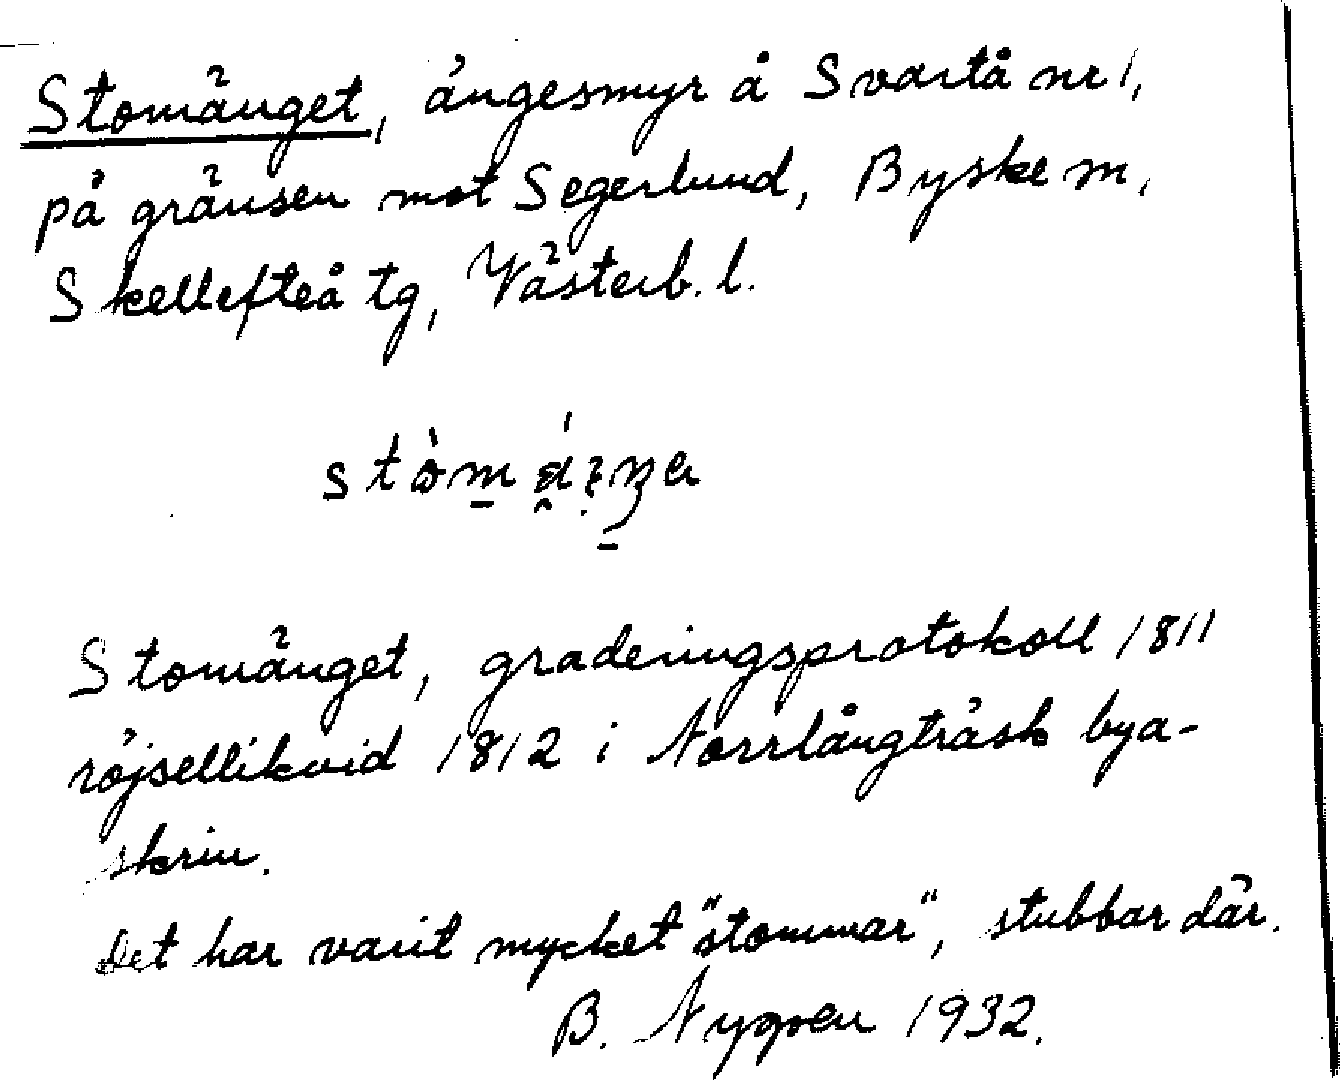 Stomänget, ängesmyr å Svartå nr 1,
på gränsen mot Segerlund, Byske m,
Skellefteå tg, Västerb. l.
Stomänget, graderingsprotokoll 1811
röjsellikvid 1812 i Norrlångträsk bya-
skrin.
Det har varit mycket "stommar", stubbar där.
B. Nygren 1932.